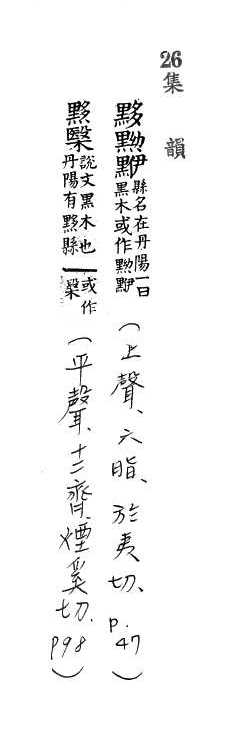 26集 韻
黟 縣名在丹陽一曰
黑木或作
(上聲、六脂、於夷切、p.47)
黟 說文黑木也
丹陽有黟縣 ー或作
(平聲、十二齊、煙奚切.P98)